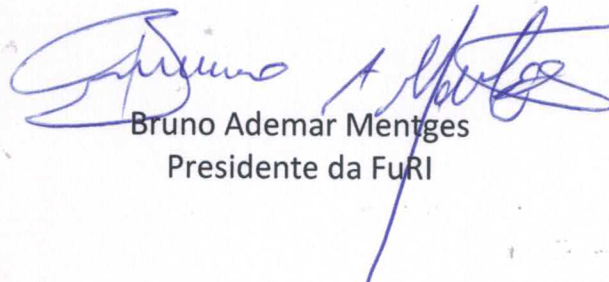 Bruno A Mentges
Bruno Ademar Mentges
Presidente da FuRI